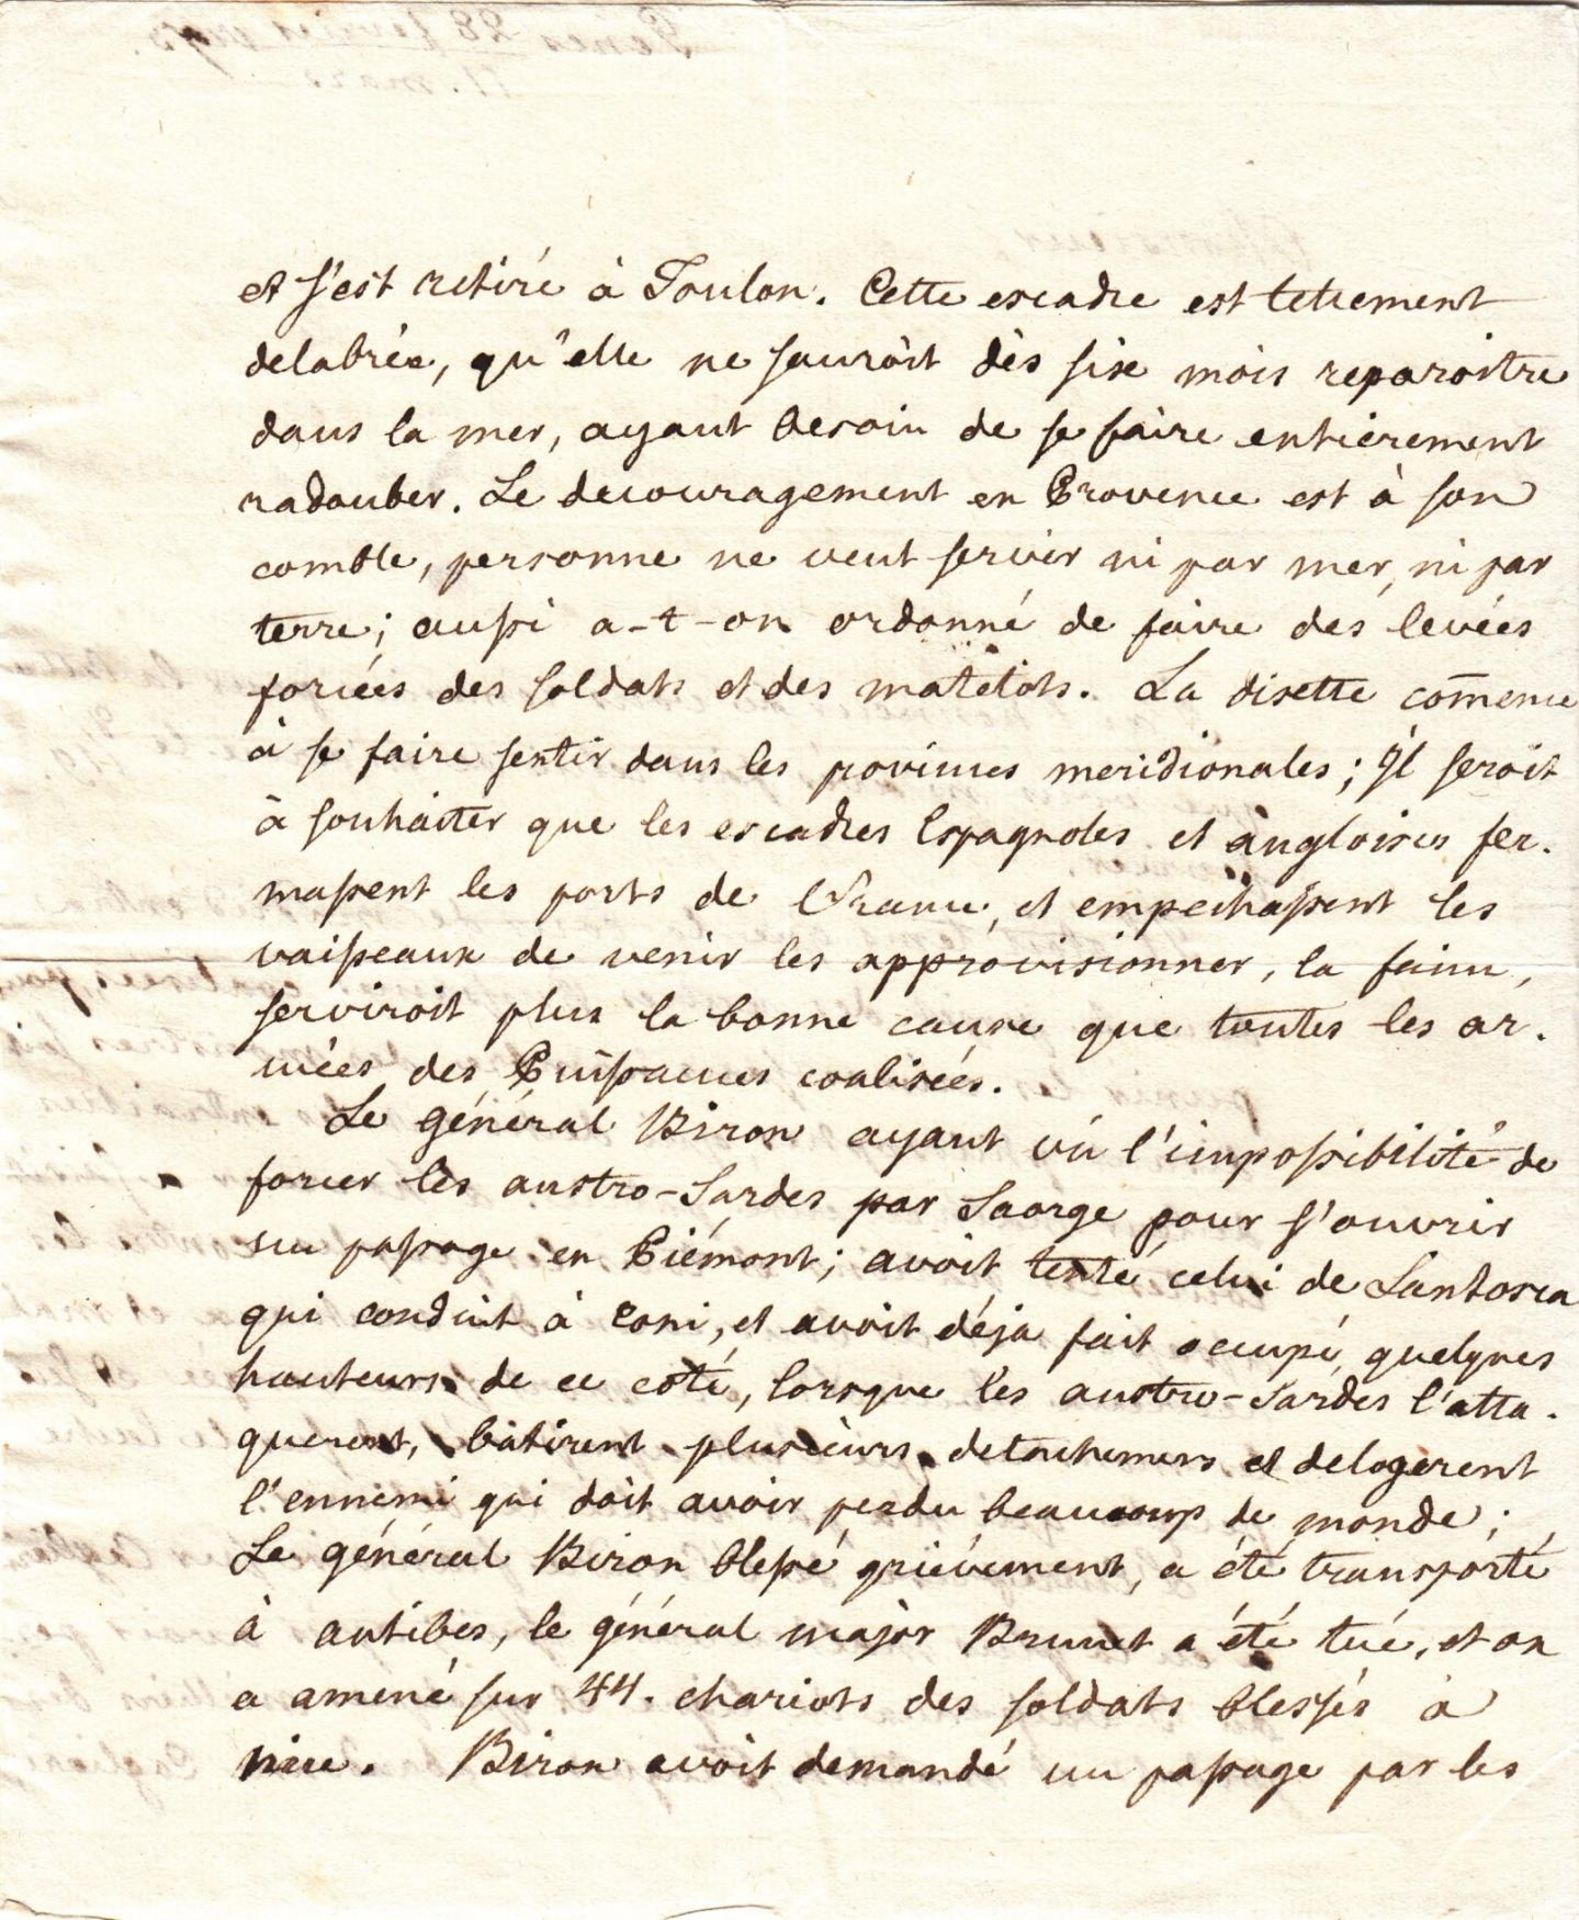 et s'est retiré à Toulon. Cette escadre est tellement
delabrée, qu'elle ne sauroit dès six mois reparoitre
dans la mer, ayant besoin de se faire entièrement
radouber. Le decouragement en Provence est à son
comble, personne ne veut servir ni par mer, ni par
terre; aussi a-t-on ordonné de faire des levées
forcées des soldats et des matelots. La disette com̄ence
à se faire sentir dans les provinces meridionales; Il seroit
à souhaiter que les escadres Espagnoles et angloises fer-
massent les ports de France, et empechassent les
vaisseaux de venir les approvisionner, la faim,
serviroit plus la bonne cause que toutes les ar-
mées des Puissances coalisées.
Le général Biron ayant vû l'impossibilité de
forcer les austro-Sardes par Saorge pour s'ouvrir
un passage en Piémont; avoit tenté celui de Lantosca
qui conduit à Coni, et avoit déja fait occupé quelques
hauteurs de ce coté, lorsque les austro-Sardes l'atta-
querent, bâtirent plusieurs detachemens et delogerent
l'ennemi qui doit avoir perdu beaucoup de monde;
Le général Biron blessé grièvement, a été transporté
à antibes, le général major Brunet a été tué, et on
a amené sur 44. chariots des soldats blessés à
Nice. Biron avoit demandé un passage par les